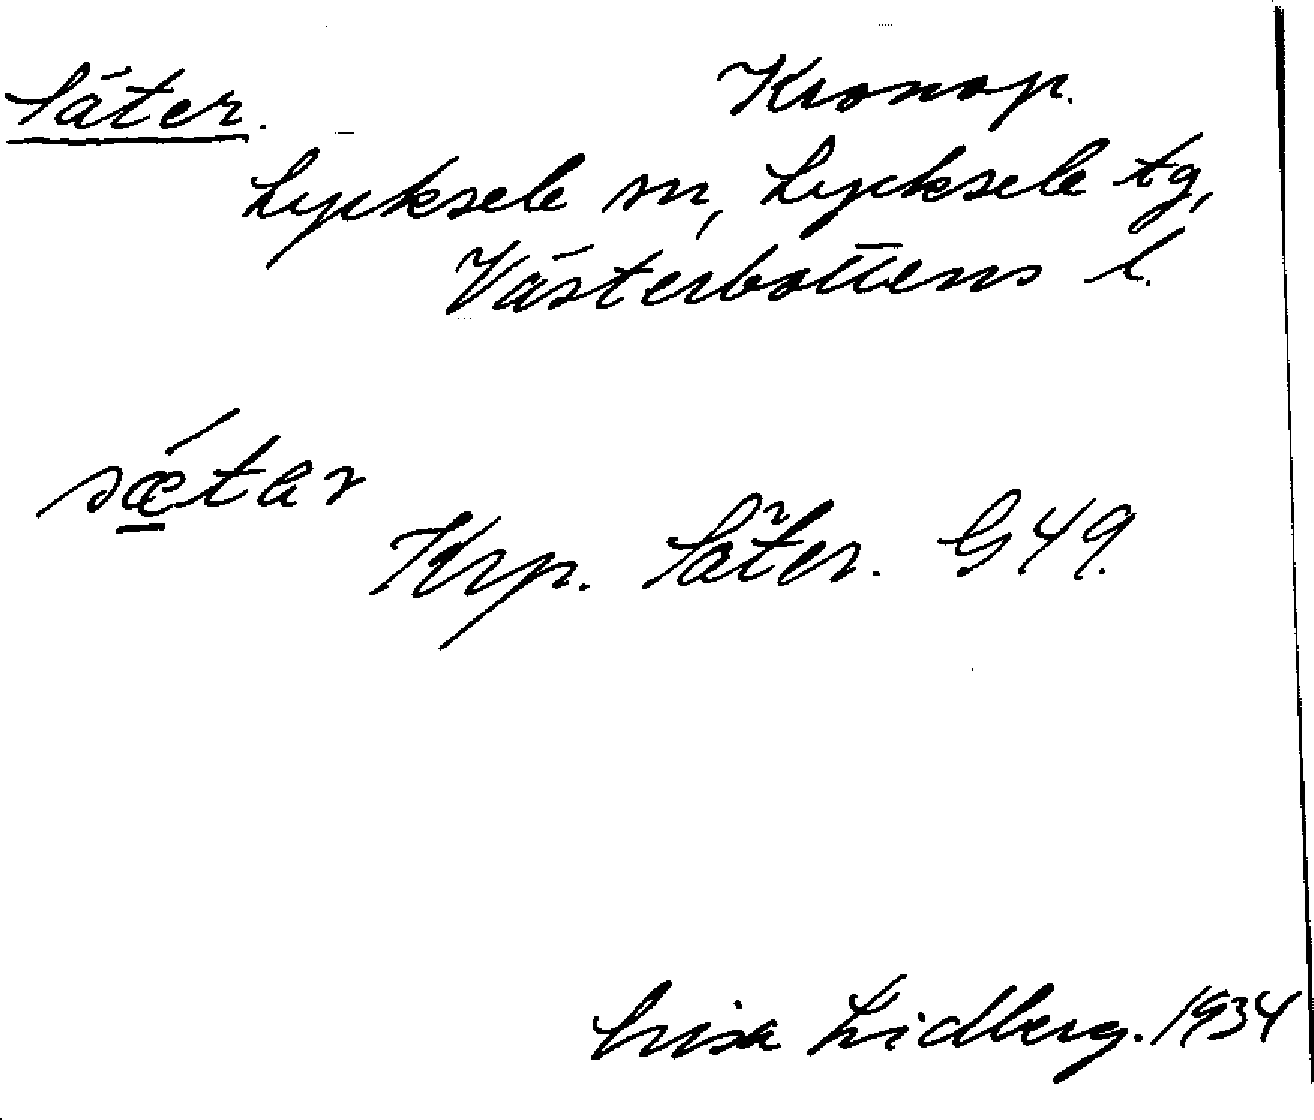 Säter. Kronop.
Lycksele sn, Lycksele tg,
Västerbottens l.
sǽtar
Krp. Säter. G49.
Lisa Lidberg. 1934